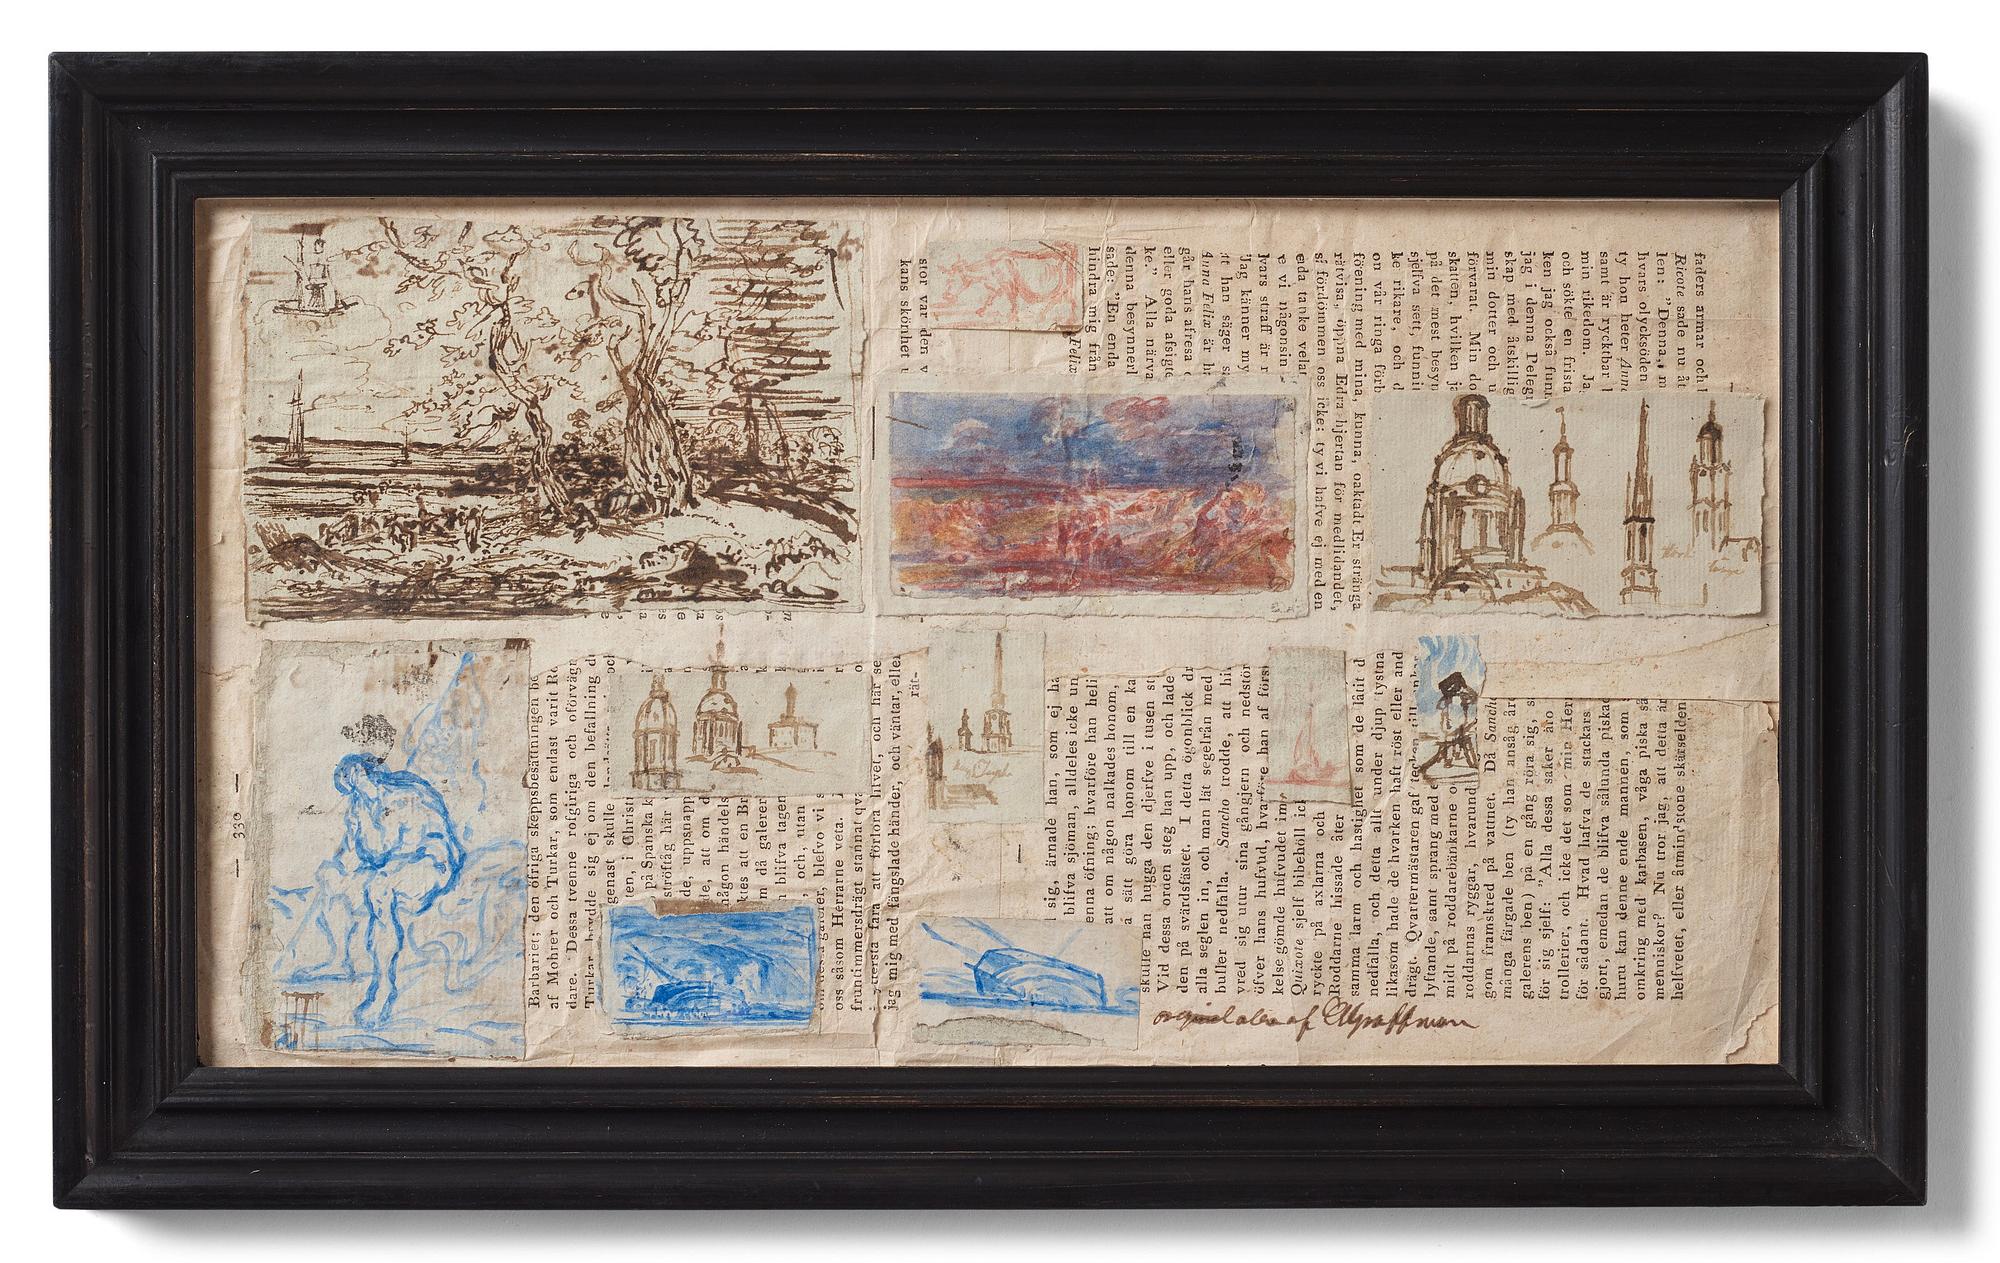 faders armar och
Ricote sade nu åt
len: "Denna, m
hvars olycksöden
ty hon heter Anna
samt är rycktbar
min rikedom. Ja
och sökte en frista
ken jag också funn
jag i denna Peleg
skap med åtskillig
min dotter och u
förvarat. Min do
skatten, hvilken j
på det mest besyn
sjelfva sett, funnit
ke rikare, och d
on vår ringa förb
föening med mina, kunna, oaktadt Er stränga
rätvisa, öppna Edra hjertan för medlidandet,
så fördömmen oss icke; ty vi hafve ej med en
eda tanke velat
e vi någonsin
hvars straff är
Jag känner my
tt han säger
Anna Felix är h
går hans afresa
eller goda afsigt
ke." Alla närva
denna besynnerl
sade: "En enda
hindra mig från
Felix
stor var den v
kans skönhet
— 330 —
Barbariet; den öfriga skeppsbesättningen be
af Mohrer och Turkar, som endast varit Ro
dare. Dessa twenne rofgiriga och oförväg
Turkar brydde sig ej om den befallning
genast skulle
ten, i Christ
på Spanska k
ströftåg här
de, uppsnapp
de, att om d
någon händels
ktes att en Br
m då galerer
blifva tagen
" och, utan
blefvo vi s
oss såsom Herrarne veta.
fruntimmersdrägt stannat qva
yttersta fara att förlora lifvet, och här se
jag mig med fängslade händer, och väntar, eller
rät-
sig, ärnade han, som ej ha
blifva sjöman, alldeles icke un
enna öfning; hvarföre han heli
att om någon nalkades honom,
å sätt göra honom till en ka
skulle han hugga den djerfve i tusen st
Vid dessa orden steg han upp, och lade
den på svärdsfästet. I detta ögonblick dr
alla seglen in, och man lät segelrån med
buller nedfalla. Sancho trodde, att hi
vred sig utur sina gångjern och nedstör
öfver hans hufvud, hvarföre han af förs
kelse gömde hufvudet im
Quixote sjelf bibehöll ick
ryckte på axlarna och
Roddarne hissade åter
samma larm och hastighet som de låtit d
nedfalla, och detta allt under djup tystna
likasom hade de hvarken haft röst eller and
drägt. Qvartermästaren gaf teck
lyftande, samt sprang med
midt på roddarebänkarne
roddarnas ryggar, hvarund
gom framskred på vattnet. Då Sancho
många färgade ben (ty han ansåg år
galerens ben) på en gång röra sig, s
för sig sjelf: "Alla dessa saker äro
trollerier, och icke det som min Her
för sådant. Hvad hafva de stackars
gjort, emedan de blifva sålunda piskade
huru kan denne ende mannen, som
omkring med karbasen, våga piska så
menniskor? Nu tror jag, att detta är
helfvetet, eller åtminstone skärselden